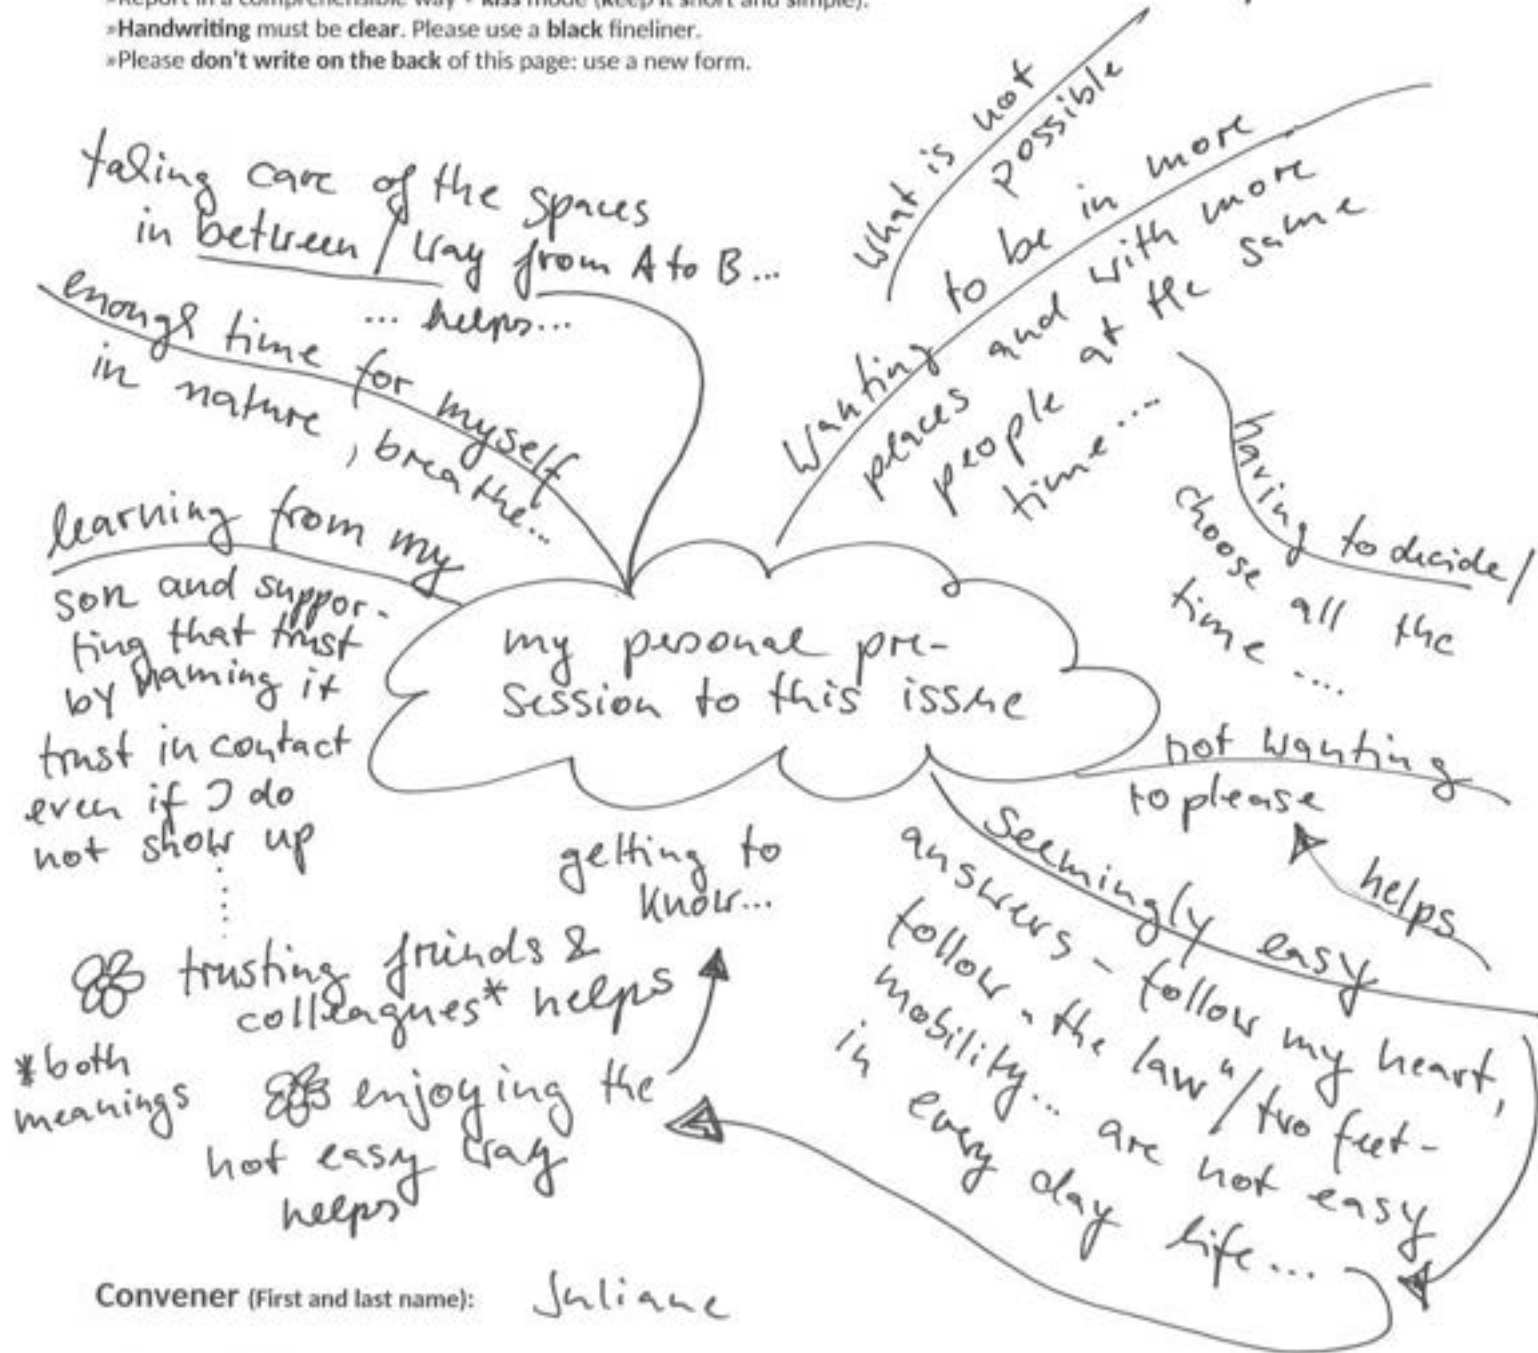 »Report in a comprehensible way - kiss mode (keep it short and simple).
»Handwriting must be clear. Please use a black fineliner.
»Please don't write on the back of this page: use a new form.
taking care of the spaces
in between / way from A to B...
... helps...
enough time for myself
in nature, breathe...
learning from my
son and suppor-
ting that trust
by naming it
trust in contact
even if I do
not show up
.....
trusting friends &
colleagues* helps
*both
meanings
enjoying the
not easy way
helps
getting to
know...
my personal pre-
session to this issue
what is not
possible
wanting to be in more
places and with more
people at the same
time....
having to decide/
choose all the
time ....
not wanting
to please
helps
seemingly easy
answers - follow my heart,
follow "the law"/two feet-
mobility... are not easy
in every day life...
Convener (First and last name): Juliane